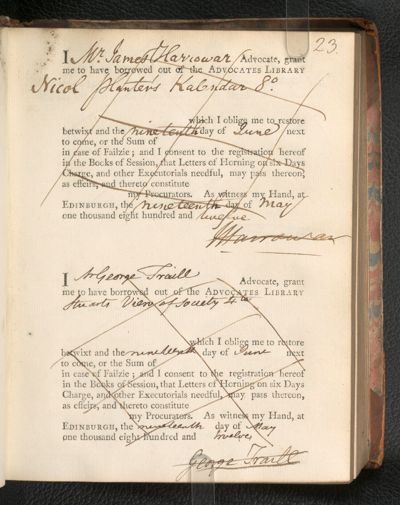 23
I Mr. James Harrowar Advocate, grant
me to have borrowed out of the ADVOCATES LIBRARY
Nicol planters Kalendar 8o.
which I oblige me to restore
betwixt and the nineteenth day of June next
to come, or the Sum of
in case of Failzie; and I consent to the registration hereof
in the Books of Session, that Letters of Horning on six Days
Charge, and other Executorials needful, may pass thereon,
as effeirs, and thereto constitute
my Procurators. As witness my Hand, at
EDINBURGH, the nineteenth day of May
one thousand eight hundred and twelve
J Harrowar
I Mr George Traill Advocate, grant
me to have borrowed out of the ADVOCATES LIBRARY
Stuarts View of Society 4to
which I oblige me to restore
betwixt and the nineteenth day of June next
to come, or the Sum of
in case of Failzie; and I consent to the registration hereof
in the Books of Session, that Letters of Horning on six Days
Charge, and other Executorials needful, may pass thereon,
as effeirs, and thereto constitute
my Procurators. As witness my Hand, at
EDINBURGH, the nineteenth day of May
one thousand eight hundred and twelve
George Traill